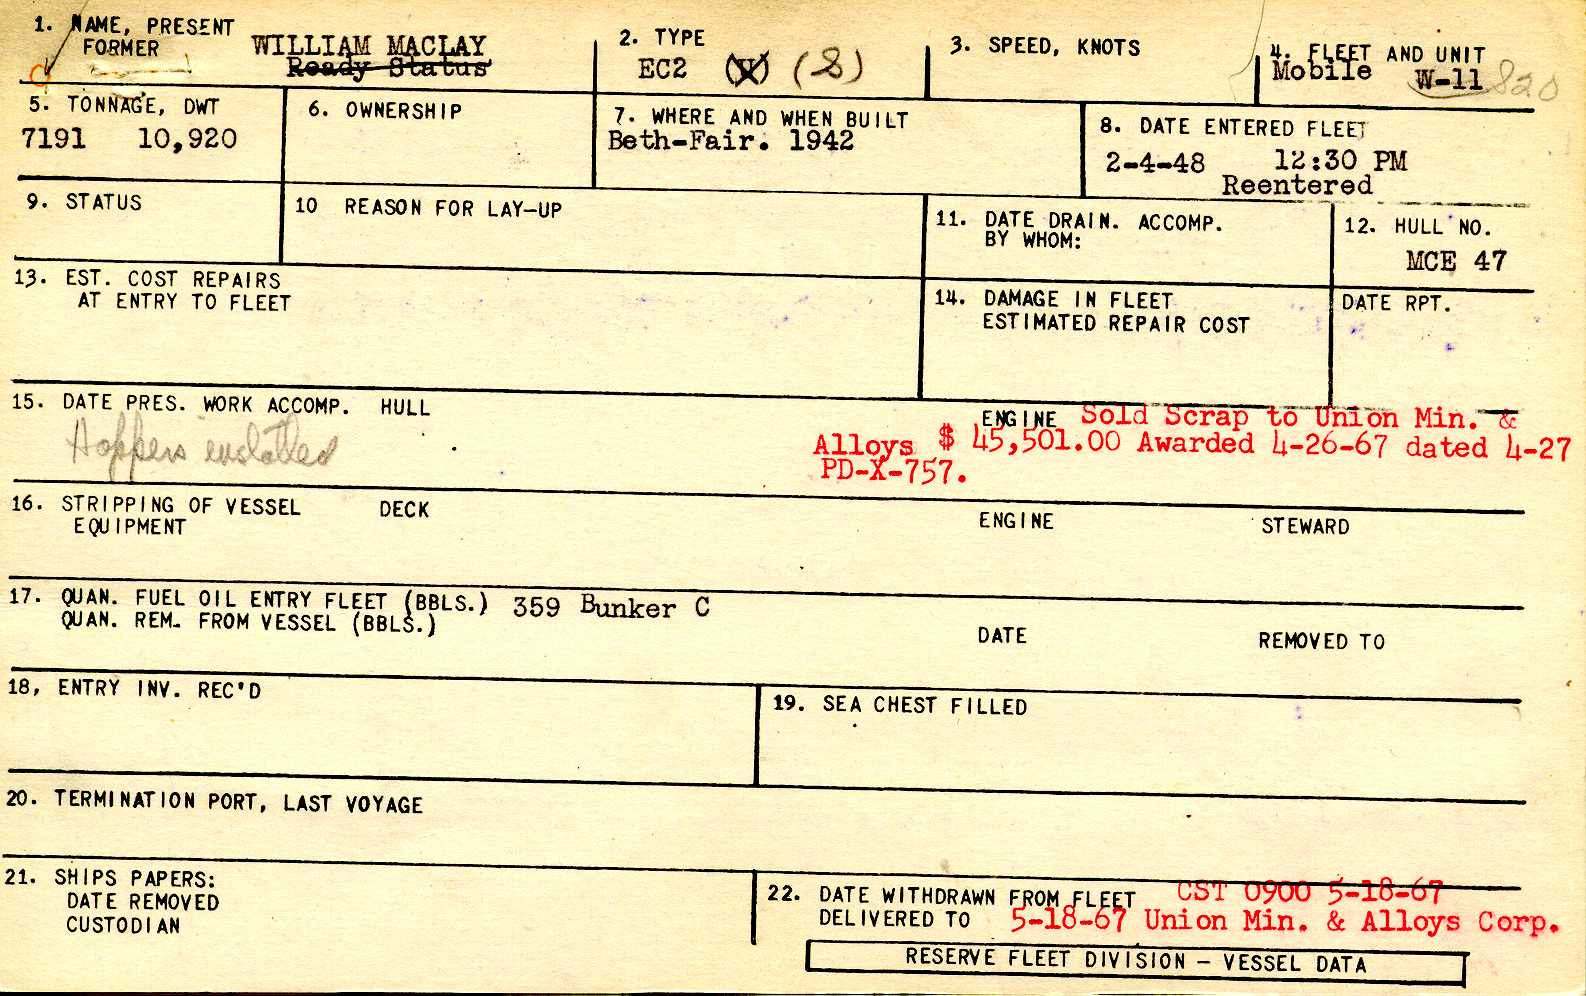 1. NAME, PRESENT
FORMER
WILLIAM MACLAY
Ready Status
2. TYPE
EC2 (X) (S)
3. SPEED, KNOTS
4. FLEET AND UNIT
Mobile W-11 820
5. TONNAGE, DWT
7191 10,920
6. OWNERSHIP
7. WHERE AND WHEN BUILT
Beth-Fair. 1942
8. DATE ENTERED FLEET
2-4-48 12:30 PM
Reentered
9. STATUS
10 REASON FOR LAY-UP
11. DATE DRAIN. ACCOMP.
BY WHOM:
12. HULL NO.
MCE 47
13. EST. COST REPAIRS
AT ENTRY TO FLEET
14. DAMAGE IN FLEET
ESTIMATED REPAIR COST
DATE RPT.
15. DATE PRES. WORK ACCOMP. HULL
Hoppers
ENGINE Sold Scrap to Union Min. &
Alloys $ 45,501.00 Awarded 4-26-67 dated 4-27
PD-X-757.
16. STRIPPING OF VESSEL DECK
EQUIPMENT
ENGINE STEWARD
17. QUAN. FUEL OIL ENTRY FLEET (BBLS.) 359 Bunker C
QUAN. REM. FROM VESSEL (BBLS.)
DATE REMOVED TO
18, ENTRY INV. REC'D
19. SEA CHEST FILLED
20. TERMINATION PORT, LAST VOYAGE
21. SHIPS PAPERS:
DATE REMOVED
CUSTODIAN
22. DATE WITHDRAWN FROM FLEET CST 0900 5-18-67
DELIVERED TO 5-18-67 Union Min. & Alloys Corp.
RESERVE FLEET DIVISION - VESSEL DATA